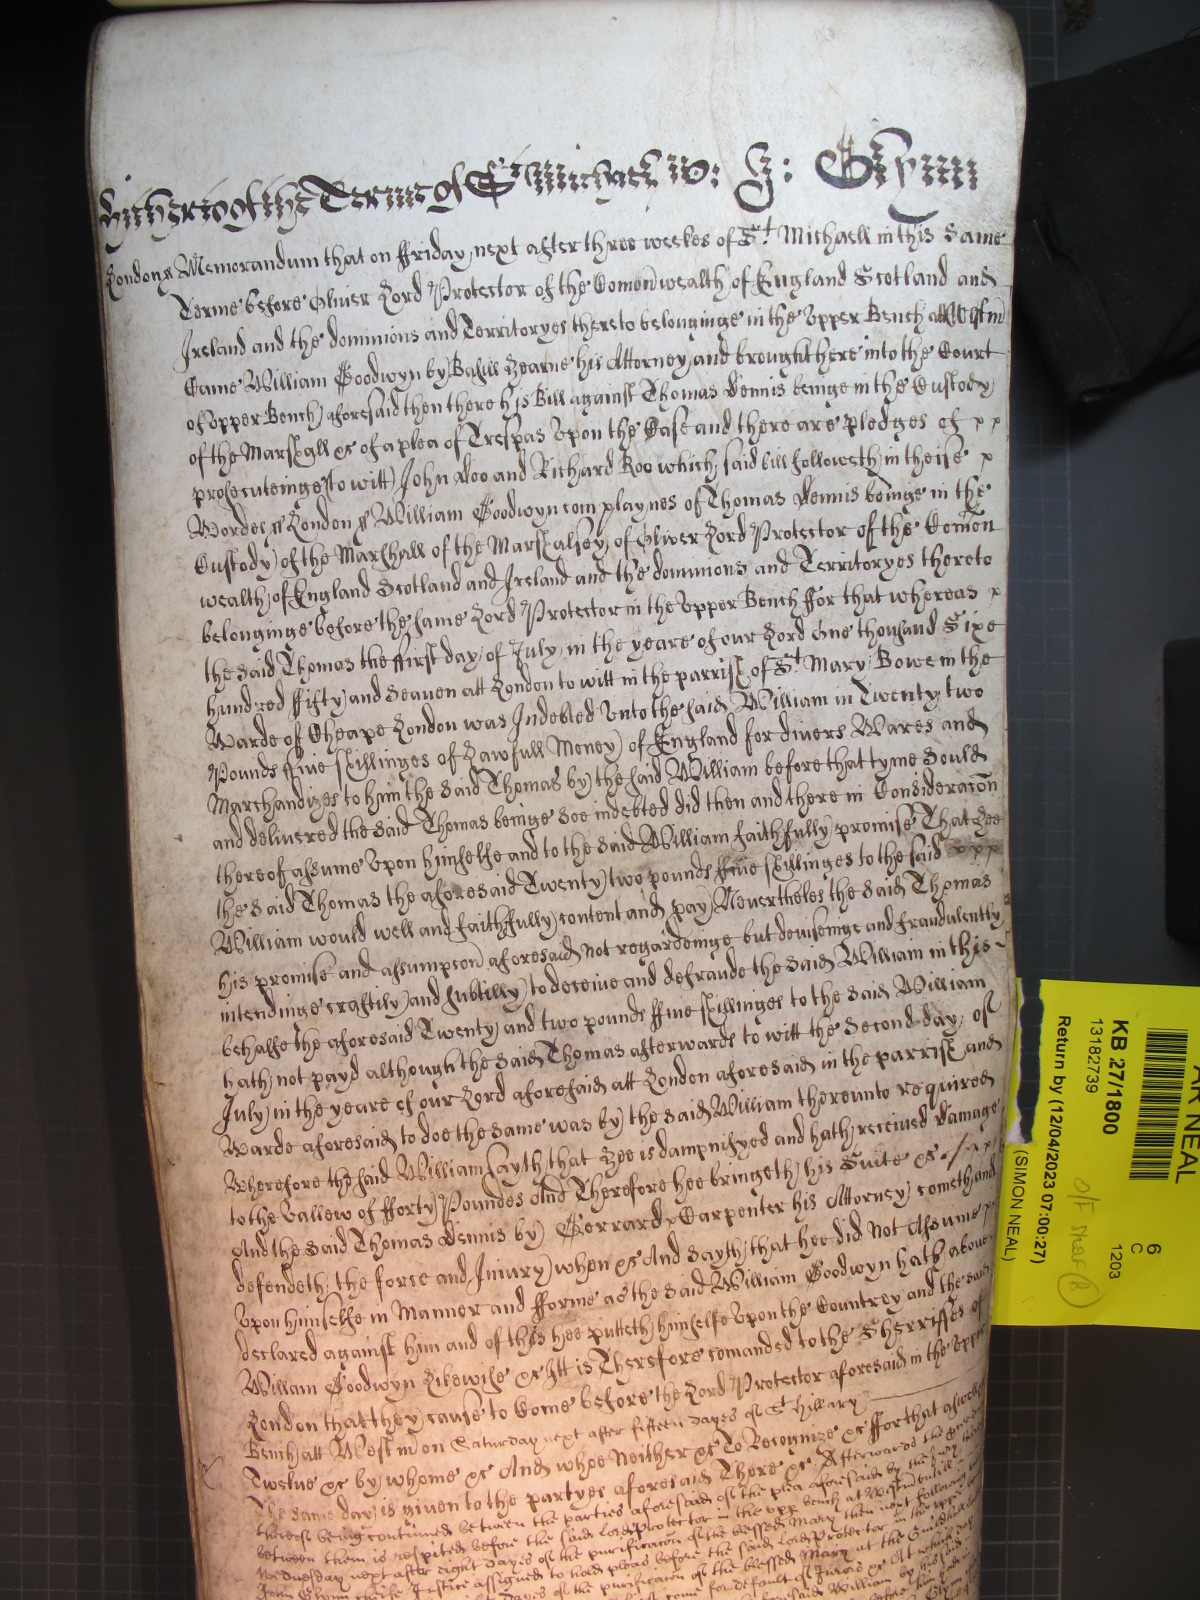 Hitherto of the Terme of St Michaell W: Y: Glynn
London ss Memorandum that on ffriday next after three weekes of St Michaell in this Same
Terme before Oliver Lord Protector of the Comon wealth of England Scotland and
Ireland and the dominions and Territoryes thereto belonginge in the Upper Bench att Westm
Came William Goodwyn by Basill Hearne his Attorney and brought here into the Court
of Upper Bench aforesaid then there his Bill against Thomas Dennis beinge in the Custody
of the Marshall &c of a plea of Trespas Upon the Case and there are pledges of x x
prosecuteinge (to witt) John Doo and Richard Roo which said bill followeth in theise x
Wordes ss London ss William Goodwyn complaynes of Thomas Dennis beinge in the
Custody of the Marshall of the Marshalsey of Oliver Lord Protector of the Comon
wealth of England Scotland and Ireland and the dominions and Territoryes thereto
belonginge before the same Lord Protector in the Upper Bench ffor that whereas x
the said Thomas the ffirst day of July in the yeare of our Lord One thousand Sixe
hundred ffifty and Seaven att London to witt in the parrish of St Mary Bowe in the
Warde of Cheape London was Indebted Unto the said William in Twenty two
Pounds ffive shillinges of Lawfull Money of England for divers Wares and
Marchandizes to him the Said Thomas by the said William before that tyme Sould
and delivered the said Thomas beinge Soe indebted did then and there in Consideracon
thereof assume Upon himselfe and to the Said William faithfully promise That hee
the Said Thomas the aforesaid Twenty two pounds ffive shillinges to the said x x x
William would well and faithfully content and pay Nevertheles the Said Thomas
his promise and assumpcon aforesaid not regardeinge but deviseinge and fraudulently
intendinge craftily and subtilly to deceive and defraude the Said William in this
behalfe the aforesaid Twenty and two pounds ffive shillinges to the Said William
hath not payd although the Said Thomas afterwards to witt the Second day of
July in the yeare of our Lord aforesaid att London aforesaid in the parrish and
Warde aforesaid to doe the Same was by the Said William thereunto required
Wherefore the said William sayth that hee is dampnifyed and hath received damage
to the Vallew of fforty Poundes And Therefore hee bringeth his Suite &c
And the Said Thomas Dennis by Gerrard Carpenter his Attorney cometh and
defendeth the force and Injury when &c And Sayth that hee did not Assume
Upon himselfe in Manner and fforme as the Said William Goodwyn hath above
declared against him and of this hee putteth himselfe Upon the Countrey and the said
William Goodwyn Likewise &c Itt is Therefore comanded to the Sherriffes of
London that they cause to Come before the Lord Protector aforesaid in the Upper
Bench att Westm on Saturday next after fifteen dayes of St Hillary
Twelve &c by whome &c And whoe Neither &c To Recognize &c ffor that aswell
The same day is given to the partyes aforesaid There &c Afterwards the
thereof being continued betweene the parties aforesaid of the plea aforesaid by the Jury
between them is respited before the said lord protector in the upp bench at Westm untill
Wednesday next after eight dayes of the purificacon of the blessed Mary then next following
John Glynn cheife Justice assigned to hold pleas before the said lord protector in the upper
dayes of the purificacon of the blessed Mary at the Guildhall
come for default of Jurors &c At which day
aforesaid William by his said
KB 27/1800
13182739
Return by (12/04/2023 07:00:27)
(SIMON NEAL)
6
C
1203
AR NEAL